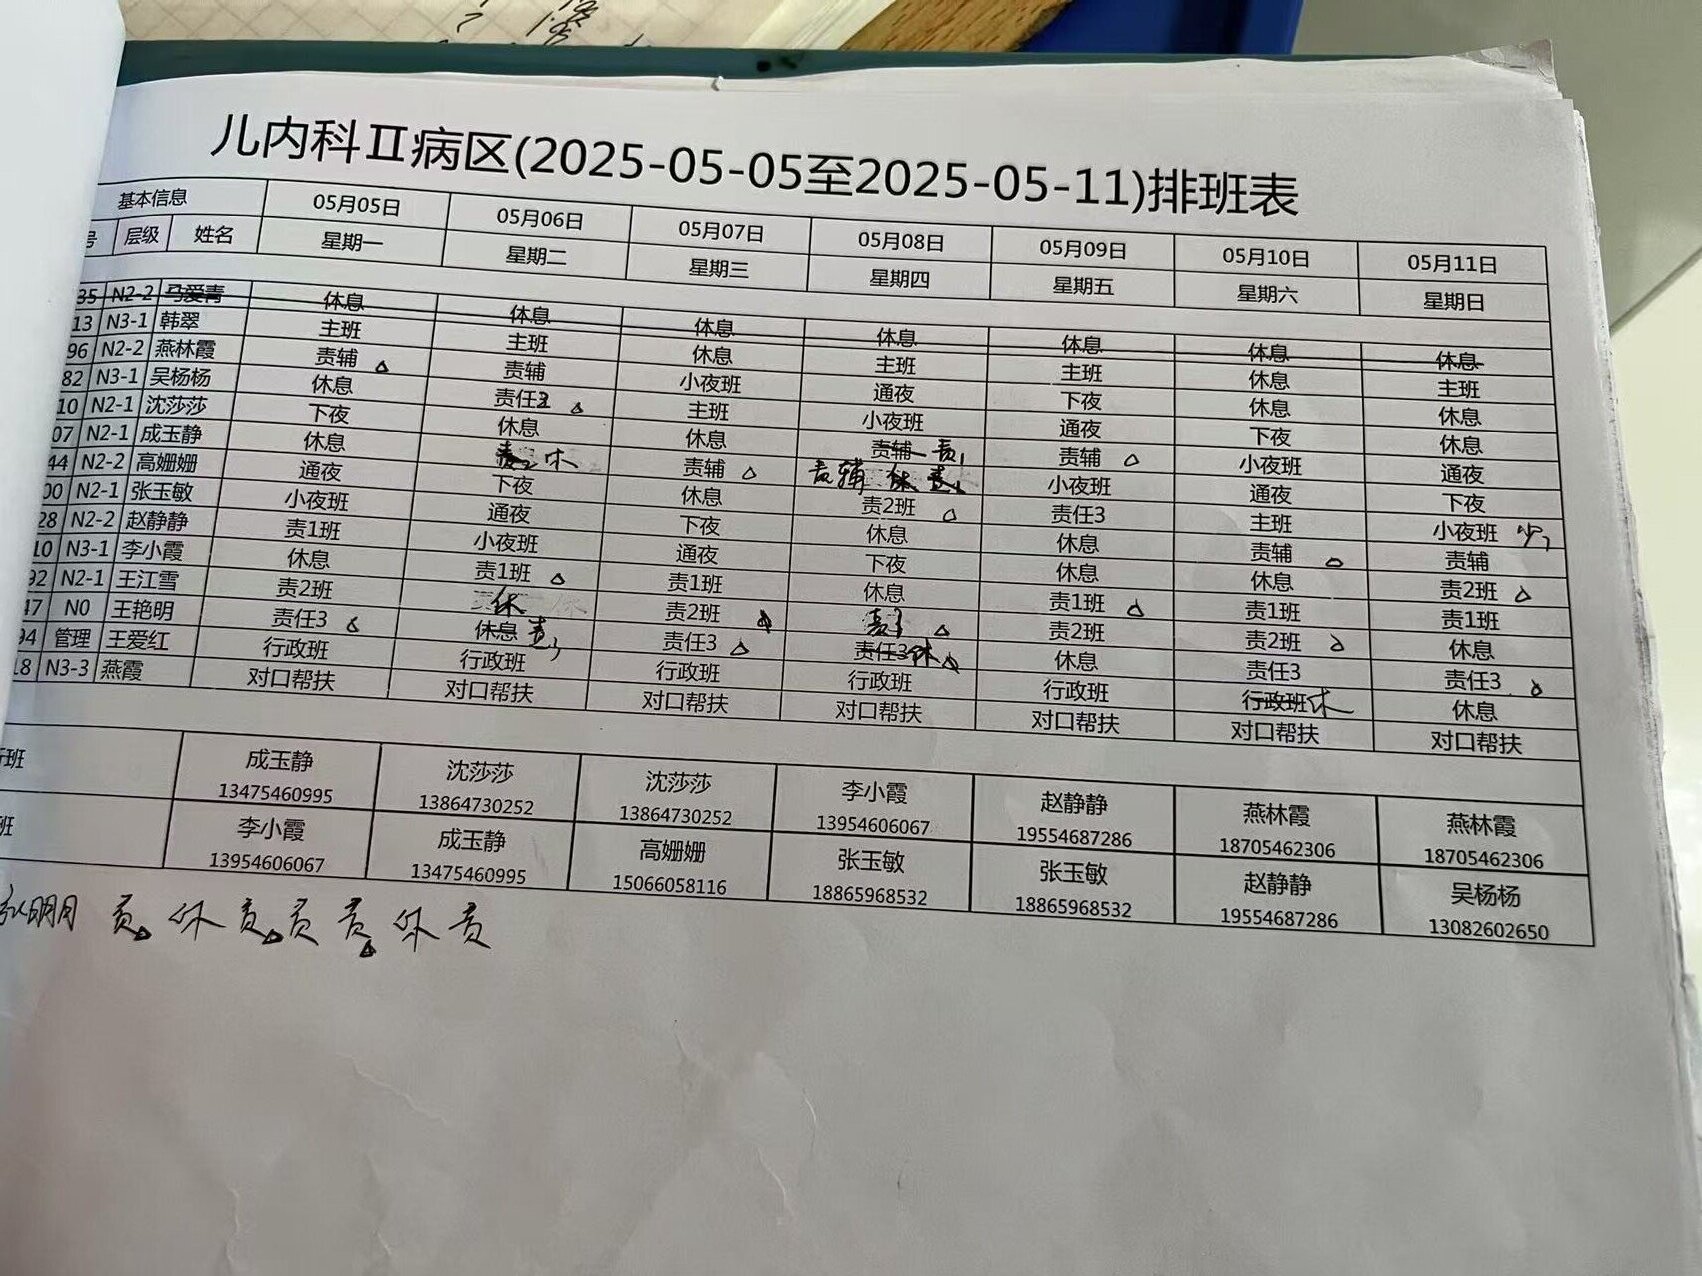 儿内科Ⅱ病区(2025-05-05至2025-05-11)排班表
基本信息 05月05日 05月06日 05月07日 05月08日 05月09日 05月10日 05月11日
号 层级 姓名 星期一 星期二 星期三 星期四 星期五 星期六 星期日
35 N2-2 马爱青 休息 休息 休息 休息 休息 休息 休息
13 N3-1 韩翠 主班 主班 休息 主班 主班 休息 主班
96 N2-2 燕林霞 责辅 责辅 小夜班 通夜 下夜 休息 休息
82 N3-1 吴杨杨 休息 责任3 主班 小夜班 通夜 下夜 休息
10 N2-1 沈莎莎 下夜 休息 休息 责辅 责1 责辅 小夜班 通夜
07 N2-1 成玉静 休息 休 责辅 责辅 休 小夜班 通夜 下夜
44 N2-2 高姗姗 通夜 下夜 休息 责2班 责任3 主班 小夜班
00 N2-1 张玉敏 小夜班 通夜 下夜 休息 休息 责辅 责辅
28 N2-2 赵静静 责1班 小夜班 通夜 下夜 休息 休息 责2班
10 N3-1 李小霞 休息 责1班 责1班 休息 责1班 责1班 责1班
92 N2-1 王江雪 责2班 休 责2班 责3 责2班 责2班 休息
47 N0 王艳明 责任3 休息 责3 责任3 责任3 休 休息 责任3 责任3
94 管理 王爱红 行政班 行政班 行政班 行政班 行政班 行政班 休 休息
18 N3-3 燕霞 对口帮扶 对口帮扶 对口帮扶 对口帮扶 对口帮扶 对口帮扶 对口帮扶
班 成玉静 沈莎莎 沈莎莎 李小霞 赵静静 燕林霞 燕林霞
13475460995 13864730252 13864730252 13954606067 19554687286 18705462306 18705462306
班 李小霞 成玉静 高姗姗 张玉敏 张玉敏 赵静静 吴杨杨
13954606067 13475460995 15066058116 18865968532 18865968532 19554687286 13082602650
明月 责 休 责 责 责 休 责